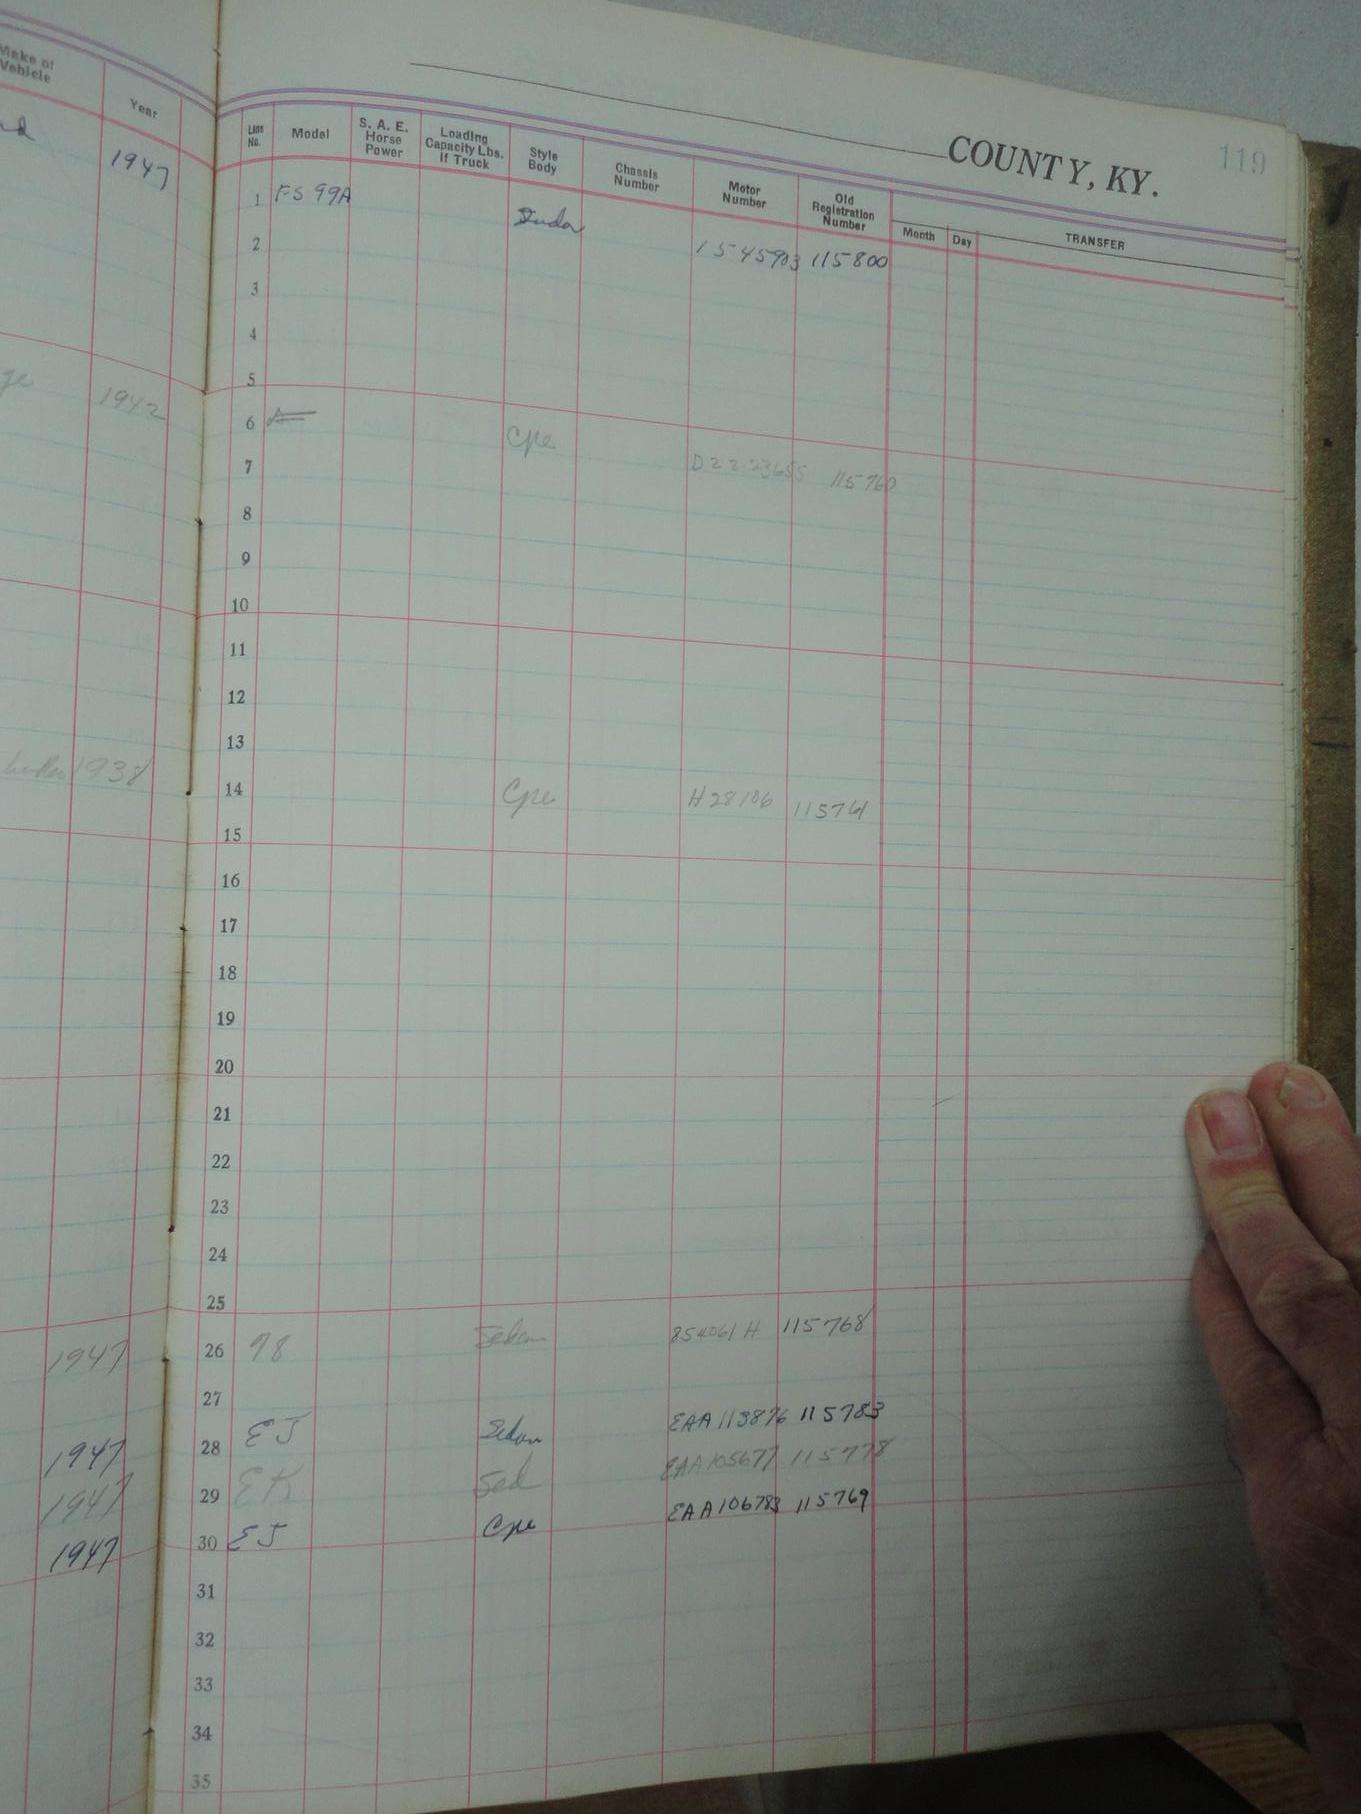 Make of Vehicle Year Line No. Model S. A. E. Horse Power Loading Capacity Lbs. If Truck Style Body Chassis Number Motor Number Old Registration Number Month Day TRANSFER
COUNTY, KY. 119
1947 1 FS 99A Tudor 1545903 115800
2
3
4
5
1942 6 Cpe 115760
7
8
9
10
11
12
13
1938 14 Cpe H28106 115761
15
16
17
18
19
20
21
22
23
24
25
1947 26 98 Sedan 854061 H 115768
27
1947 28 EJ Sedan EAA113876 115783
1947 29 EK Sed EAA105677 115778
1947 30 EJ Cpe EAA106783 115769
31
32
33
34
35